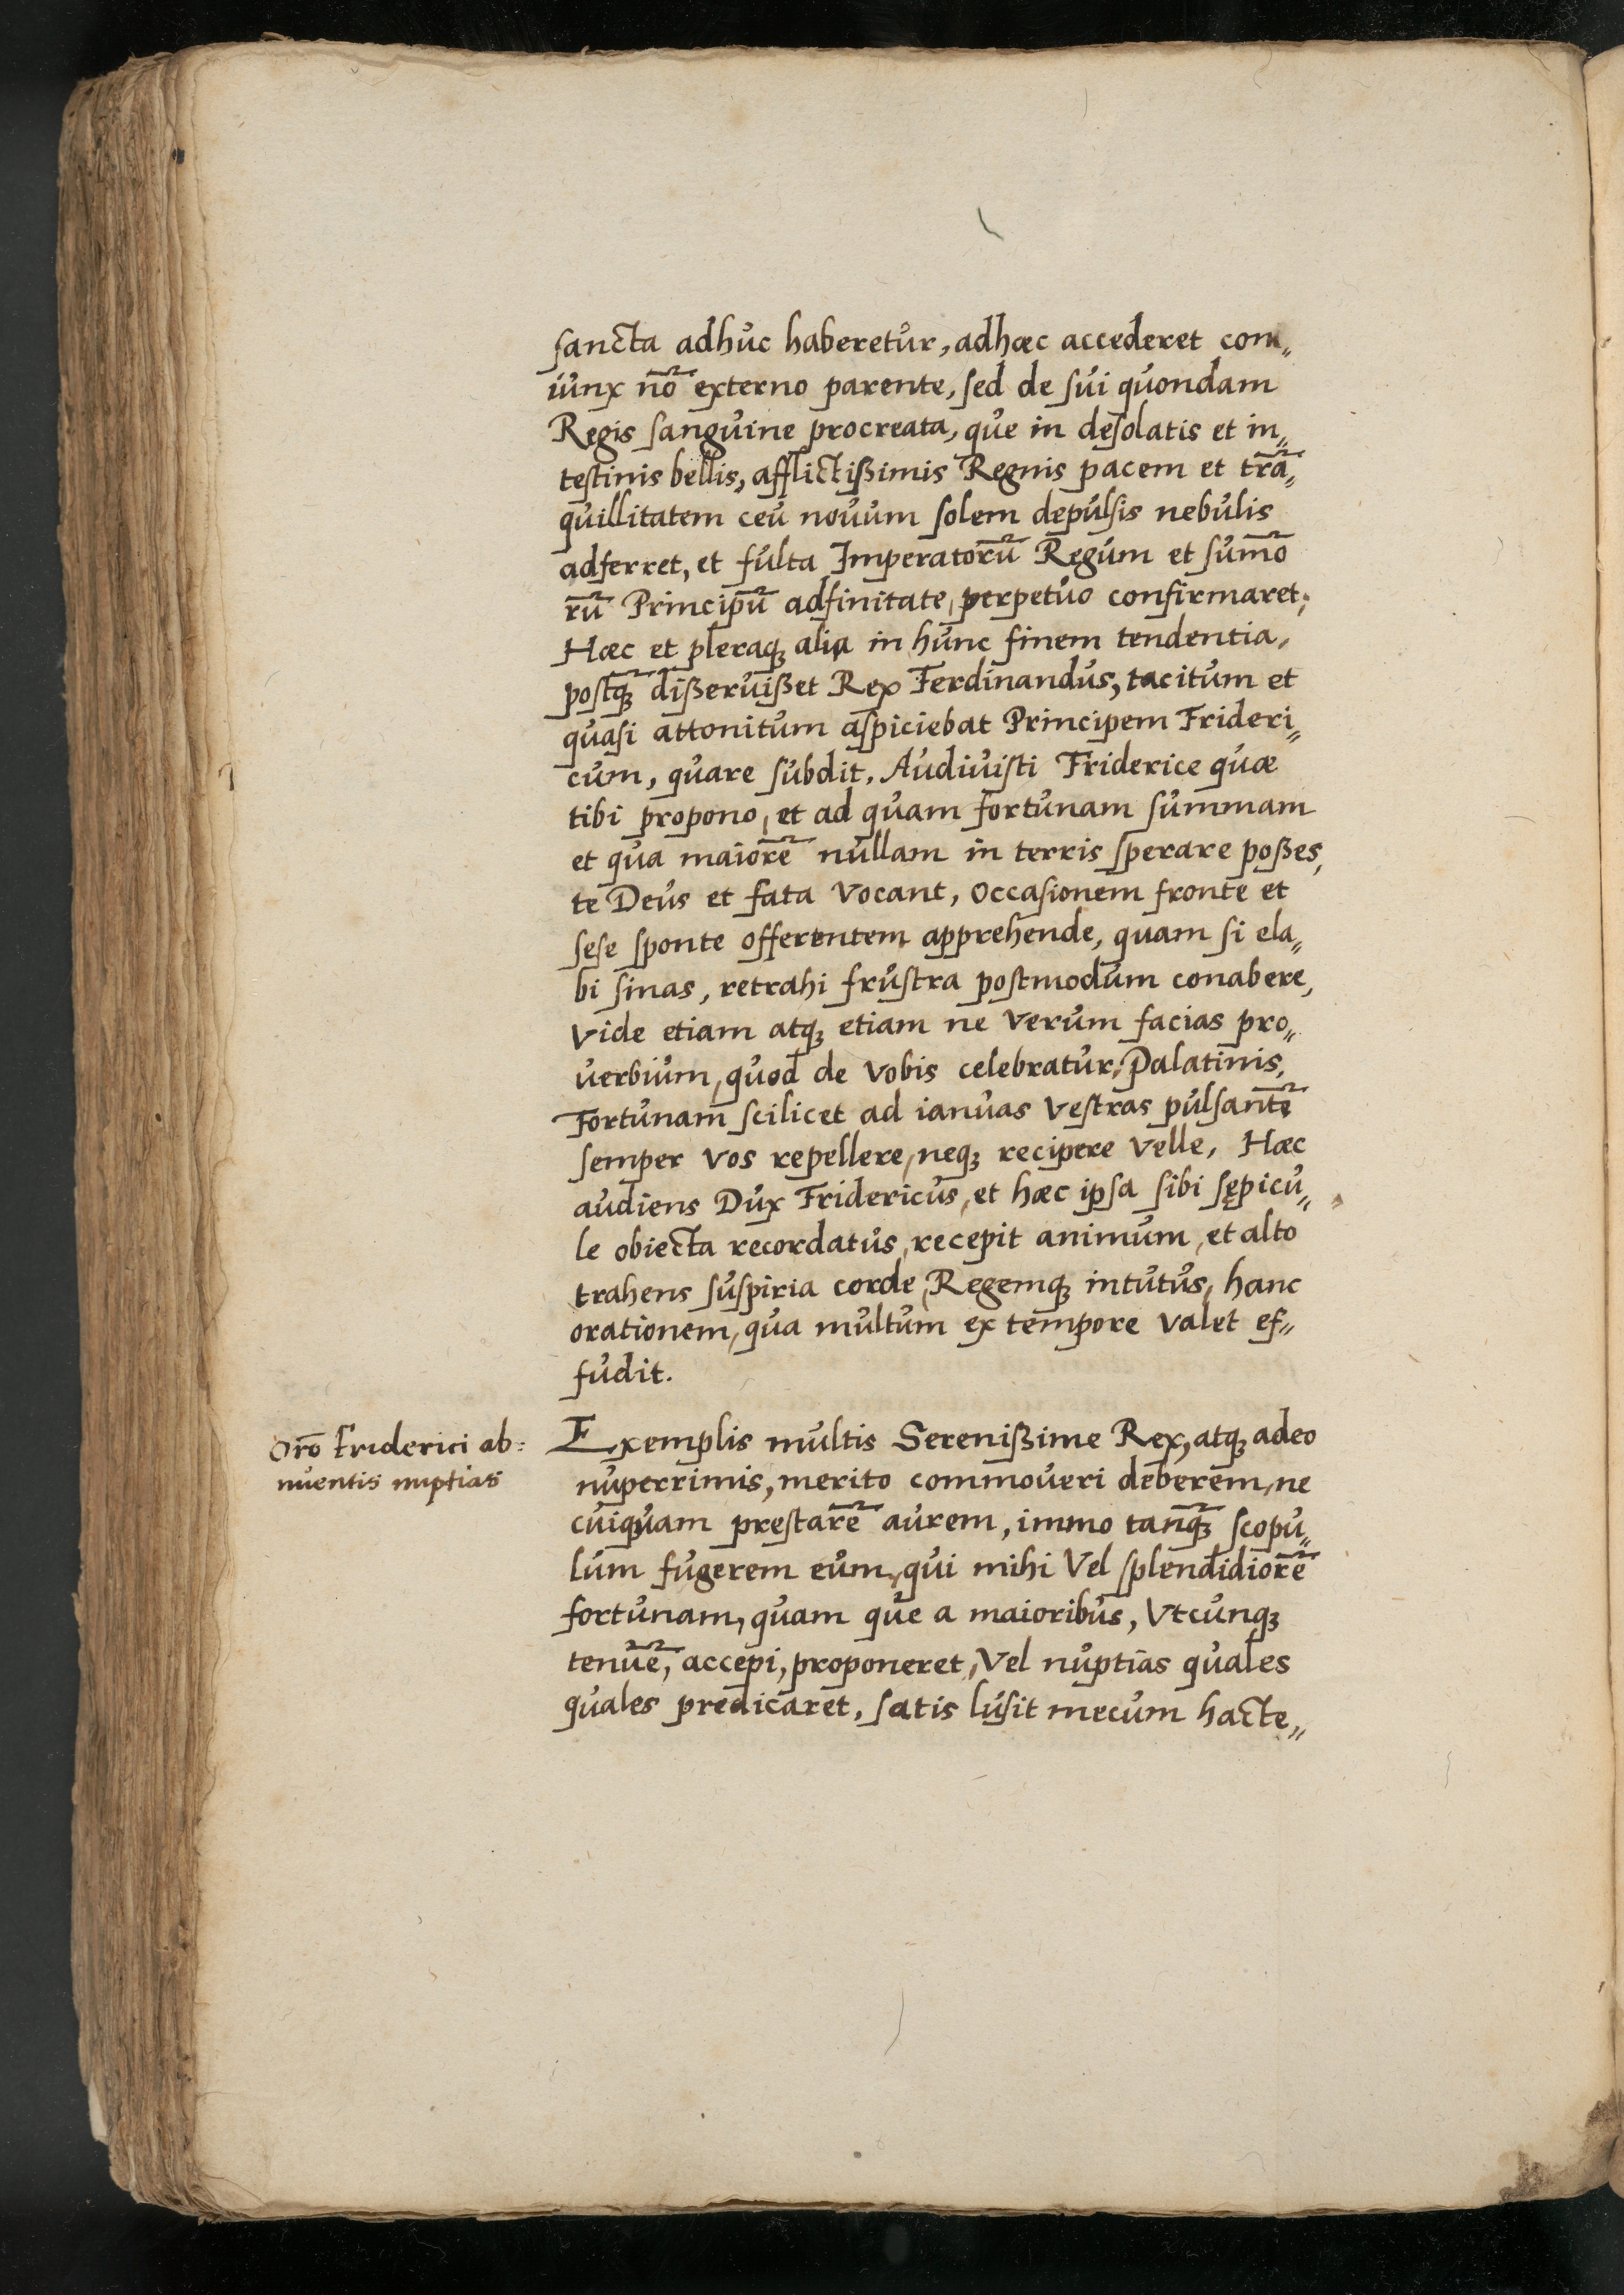 sancta adhuc haberetur, adhæc accederet con„
iunx nō externo parente, sed de sui quondam
Regis sanguine procreata, que in desolatis et in„
testinis bellis, afflictißimis Regnis pacem et trā„
quillitatem ceu nouum solem depulsis nebulis
adferret, et fulta Imperatorū Regum et sum̄o
rū Principū adfinitate, perpetuo confirmaret.
Hæc et pleraq; alia in hunc finem tendentia,
postq̄; dißeruißet Rex Ferdinandus, tacitum et
quasi attonitum aspiciebat Principem Frideri„
cum, quare subdit, Audiuisti Friderice quæ
tibi propono, et ad quam fortunam summam
et qua maiorē nullam in terris sperare poßes,
te Deus et fata vocant, occasionem fronte et
sese sponte offerentem apprehende, quam si ela„
bi sinas, retrahi frustra postmodum conabere,
vide etiam atq; etiam ne verum facias pro„
uerbium, quod de vobis celebratur, Palatinis,
Fortunam scilicet ad ianuas vestras pulsantē
semper vos repellere, neq; recipere velle, Hæc
audiens Dux Fridericus, et hæc ipsa sibi sępicu„
le obiecta recordatus, recepit animum, et alto
trahens suspiria corde, Regemq; intutus, hanc
orationem, qua multum ex tempore valet ef„
fudit.
Orō Friderici ab=
nuentis nuptias
Exemplis multis Serenißime Rex, atq; adeo
nuperrimis, merito commoueri deberem, ne
cuiquam prestarē aurem, immo tanq̄; scopu„
lum fugerem eum, qui mihi vel splendidiorē
fortunam, quam que a maioribus, vtcunq;
tenuē, accepi, proponeret, vel nuptias quales
quales predicaret, satis lusit mecum hacte„